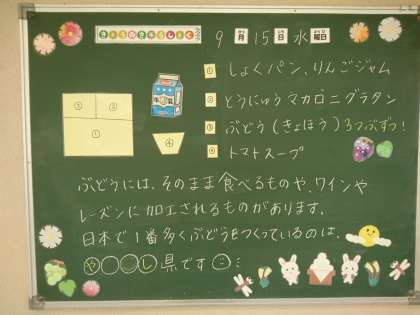 きょうのきゅうしょく
9月15日水曜日
① しょくパン、りんごジャム
② とうにゅうマカロニグラタン
③ ぶどう(きょほう)3つぶずつ!
④ トマトスープ
③ ②
①
④
ぶどうには、そのまま食べるものや、ワインや
レーズンに加工されるものがあります。
日本で1番多くぶどうをつくっているのは、
や○○し県です